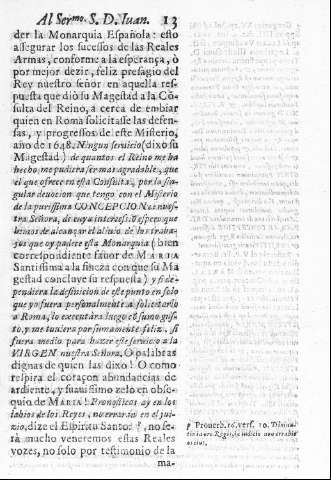 Al Sermo. S. D. Iuan. 13
der la Monarquia Española: esto
assegurar los sucessos de las Reales
Armas, conforme a la esperança, ò
por mejor dezir, feliz presagio del
Rey nuestro señor en aquella res-
puesta que diò su Magestad à la Cõ-
sulta del Reino, a cerca de embiar
quien en Roma solicitasse las defen-
sas, y progressos de este Misterio,
año de 1648. Ningun servicio (dixo su
Magestad) de quantos el Reino me ha
hecho, me pudiera ser mas agradable, que
el que ofrece en esta Consulta, por la sin-
gular devocion que tengo con el Misterio
de la purissima CONCEPCION de nues-
tra Señora, de cuya interes. õ espero que
hemos de alcançar el alivio de los traba-
jos que oy padece esta Monarquia (bien
correspondiente favor de MARIA
Santissima a la fineza con que su Ma
gestad concluye su respuesta) y si de-
pendiera la definicion de este punto en solo
que yo fuera personalmente a solicitarlo
a Roma, lo executàra luego cõ sumo gus-
to, y me tuviera por sumamente feliz, si
fuera medio para hazer este servicio a la
VIRGEN nuestra Señora. O palabras
dignas de quien las dixo! O como
respira el coraçon abundancias de
ardiente, y suavissimo zelo en obse-
quio de MARIA! Pronosticos ay en los
labios de los Reyes, no errarán en el jui-
zio, dize el Espiritu Santo p, no se-
rà mucho veneremos estas Reales
vozes, no solo por testimonio de la
ma-
p Prouerb. 16. vers. 10. Divina-
tio in labijs Regis, in iudicio non errabit
os eius.